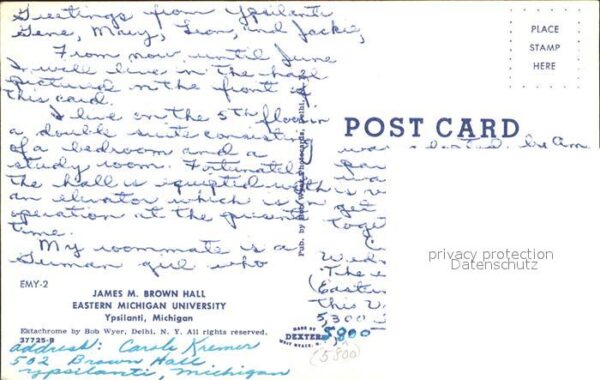 Greetings from Ypsilanti
Gene, Mary, Leon, and Jackie,
From now until June
I will live in the hall
pictured on the front of
this card.
I live on the 5th floor in
a double suite consisting
of a bedroom and a
study room. Fortunately
the hall is equipted with
an elevator which is in
operation at the present
time.
My roommate is a
German girl who
EMY-2
JAMES M. BROWN HALL
EASTERN MICHIGAN UNIVERSITY
Ypsilanti, Michigan
Ektachrome by Bob Wyer, Delhi, N. Y. All rights reserved.
37725-B
address: Carole Kremer
502 Brown Hall
Ypsilanti, Michigan
Pub. by Bob Wyer Photocards, Delhi, N.Y.
PLACE
STAMP
HERE
POST CARD
was
get
toget
Wedn
The e
(Eastern
this
5,300
5,800
(5800)
MADE BY
DEXTER
WEST NYACK, N.Y.
privacy protection
Datenschutz